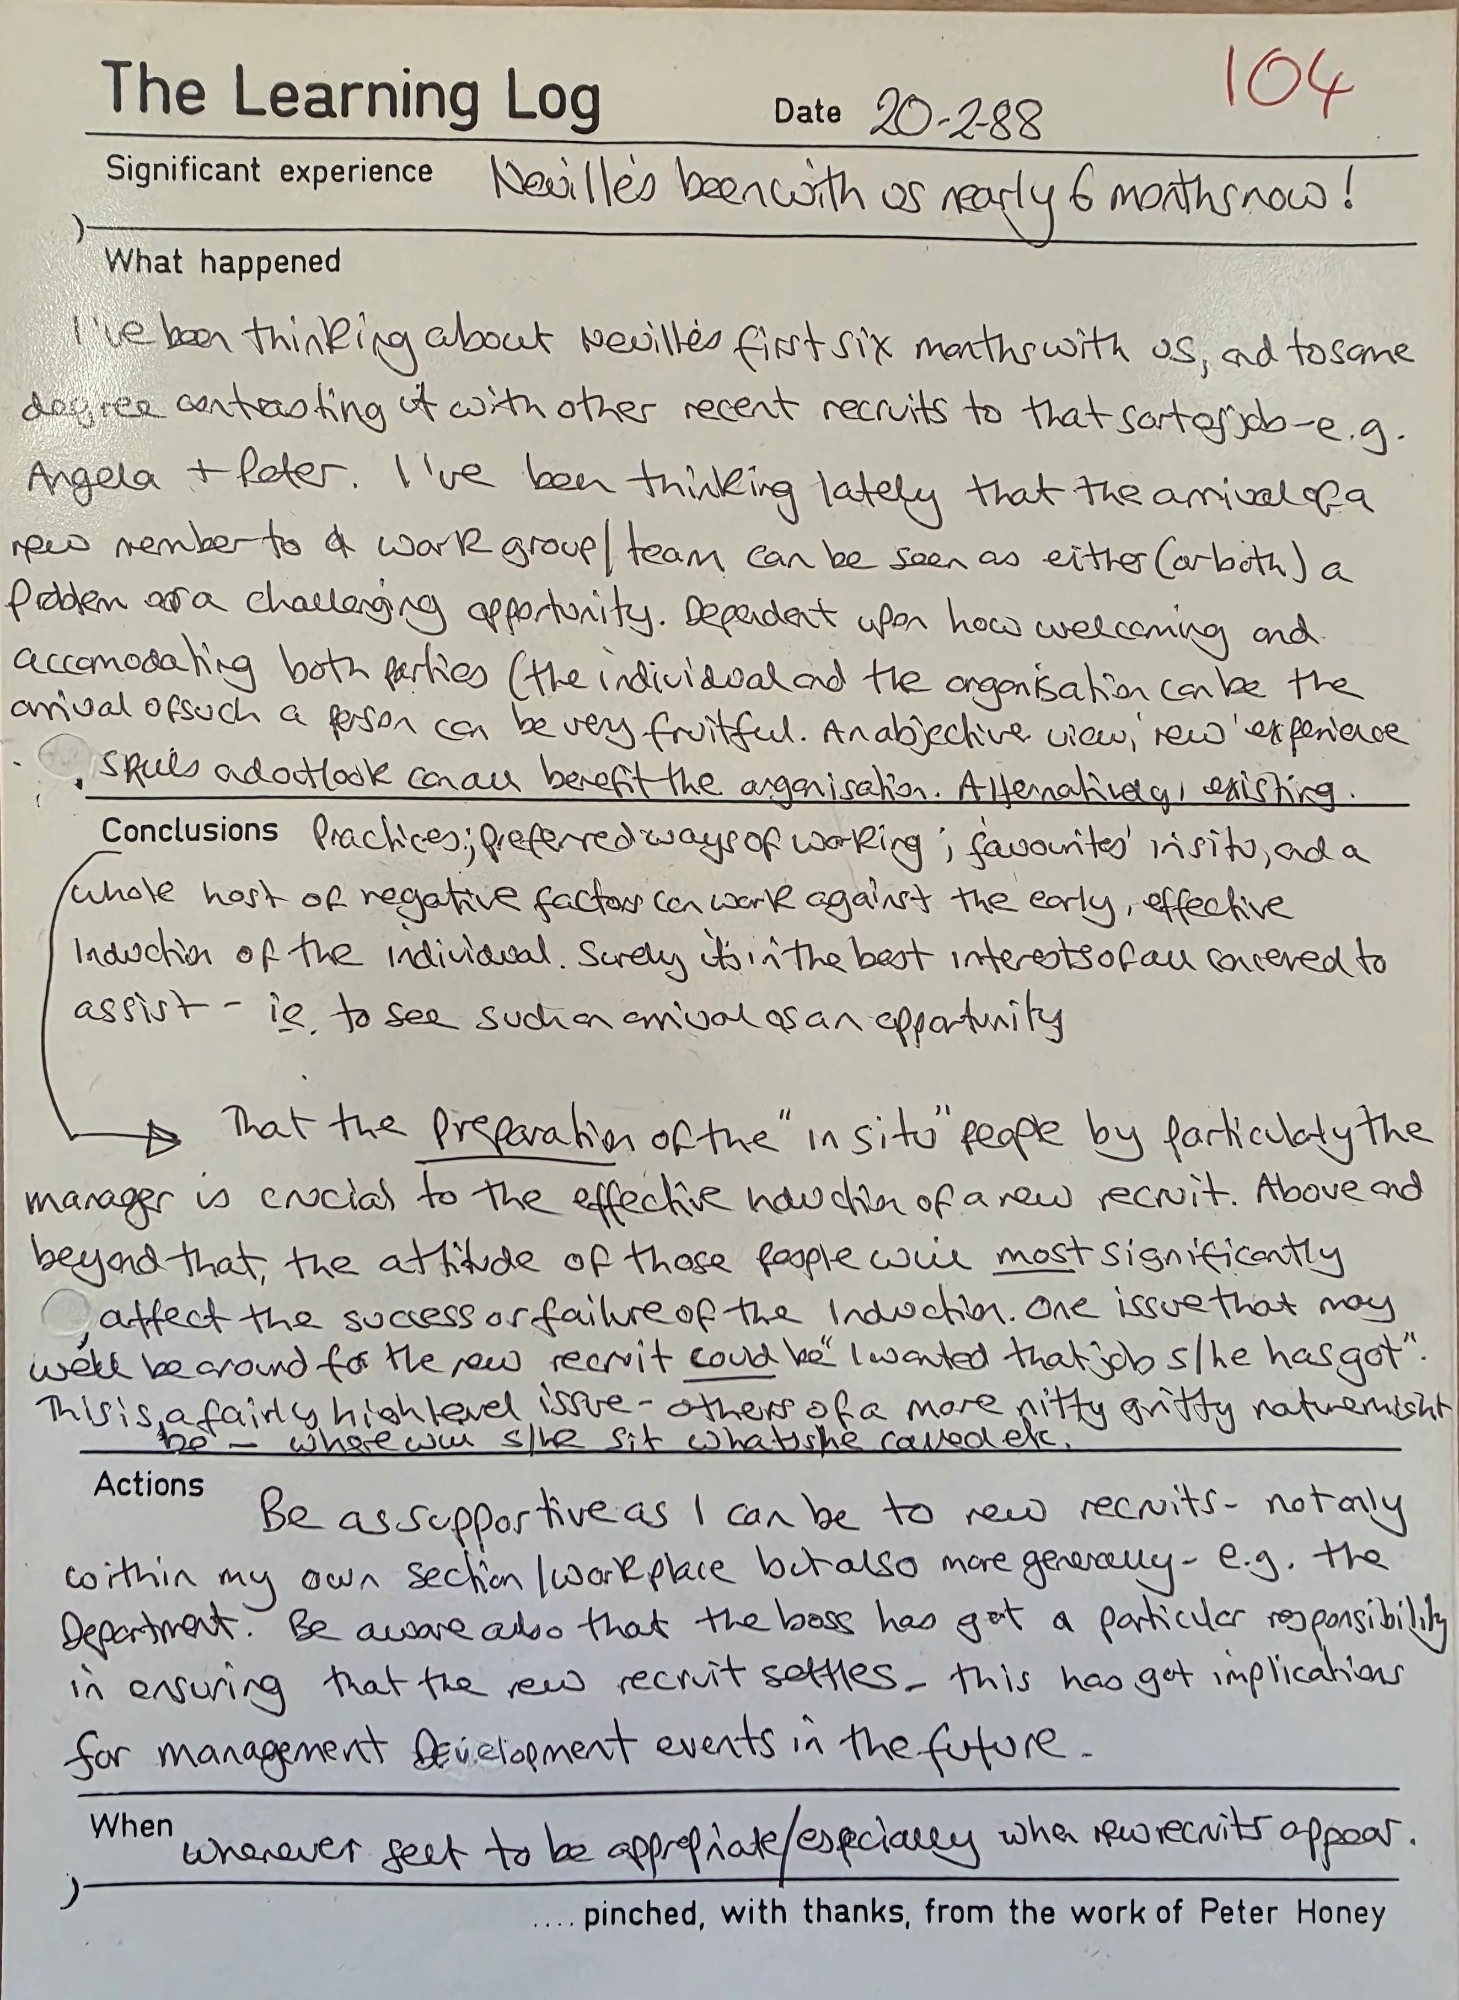 The Learning Log
Date 20-2-88
104
Significant experience Neville's been with us nearly 6 months now!
What happened
I've been thinking about Neville's first six months with us, and to some
degree contrasting it with other recent recruits to that sort of job - e.g.
Angela + Peter. I've been thinking lately that the arrival of a
new member to a work group/team can be seen as either (or both) a
problem or a challenging opportunity. Dependent upon how welcoming and
accomodating both parties (the individual and the organisation can be the
arrival of such a person can be very fruitful. An objective view, 'new' experience
skills and outlook can all benefit the organisation. Alternatively, existing
Conclusions Practices; preferred ways of working; favourites' in situ, and a
whole host of negative factors can work against the early, effective
Induction of the individual. Surely its in the best interests of all concerned to
assist - ie. to see such an arrival as an opportunity
That the preparation of the "in situ" people by particularly the
manager is crucial to the effective induction of a new recruit. Above and
beyond that, the attitude of those people will most significantly
affect the success or failure of the Induction. One issue that may
well be around for the new recruit could be "I wanted that job s/he has got".
This is a fairly high level issue - others of a more nitty gritty nature might
be - where will s/he sit what is she called etc.
Actions Be as supportive as I can be to new recruits - not only
within my own section/workplace but also more generally - e.g. the
Department. Be aware also that the boss has got a particular responsibility
in ensuring that the new recruit settles - this has got implications
for management Development events in the future -
When whenever felt to be appropriate/especially when new recruits appear.
.... pinched, with thanks, from the work of Peter Honey